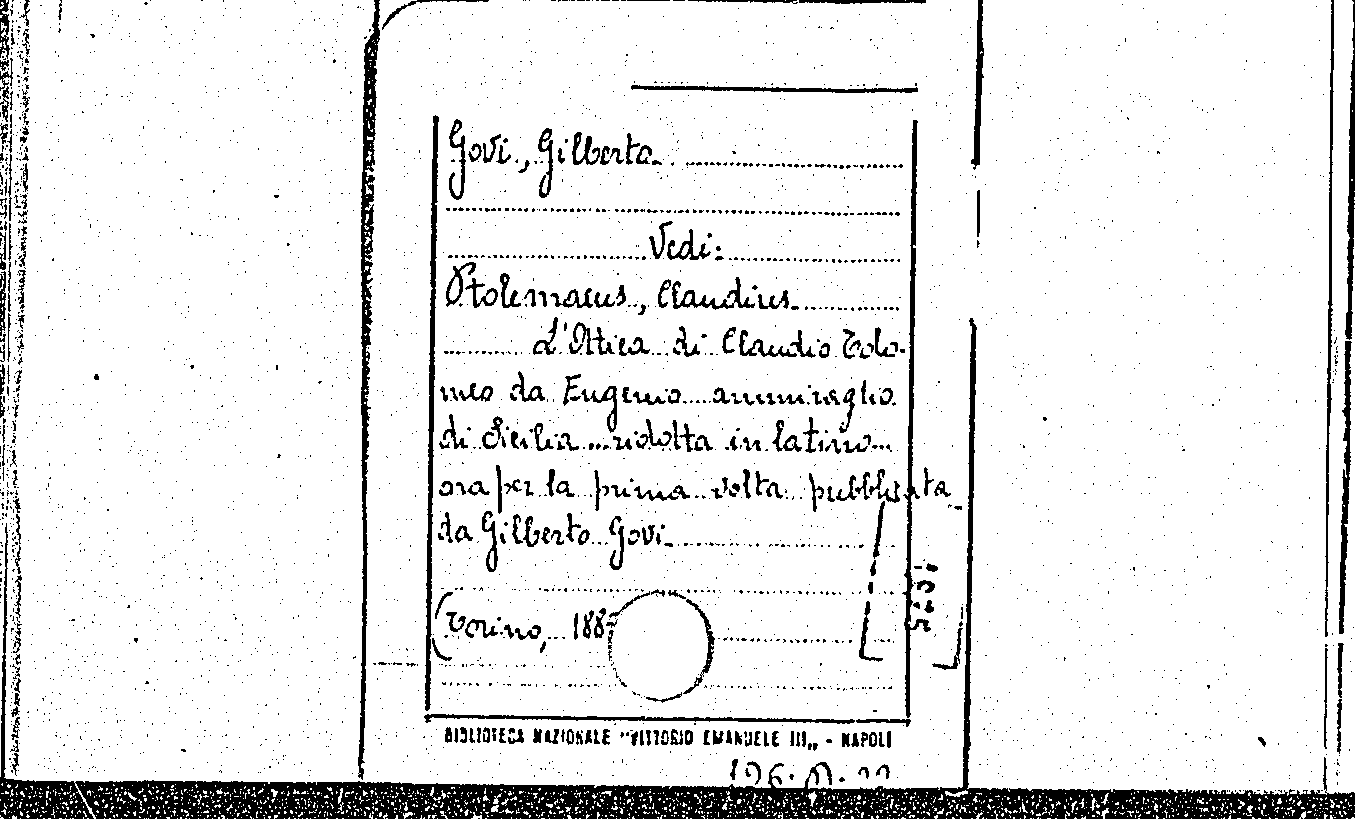 Govi, Gilberto.
Vedi:
Ptolemaeus, Claudius.
L'Ottica di Claudio Tolo-
meo da Eugenio ammiraglio
di Sicilia ... ridotta in latino ...
ora per la prima volta pubblicata
da Gilberto Govi.
(Torino, 188
BIBLIOTECA NAZIONALE "VITTORIO EMANUELE III„ - NAPOLI